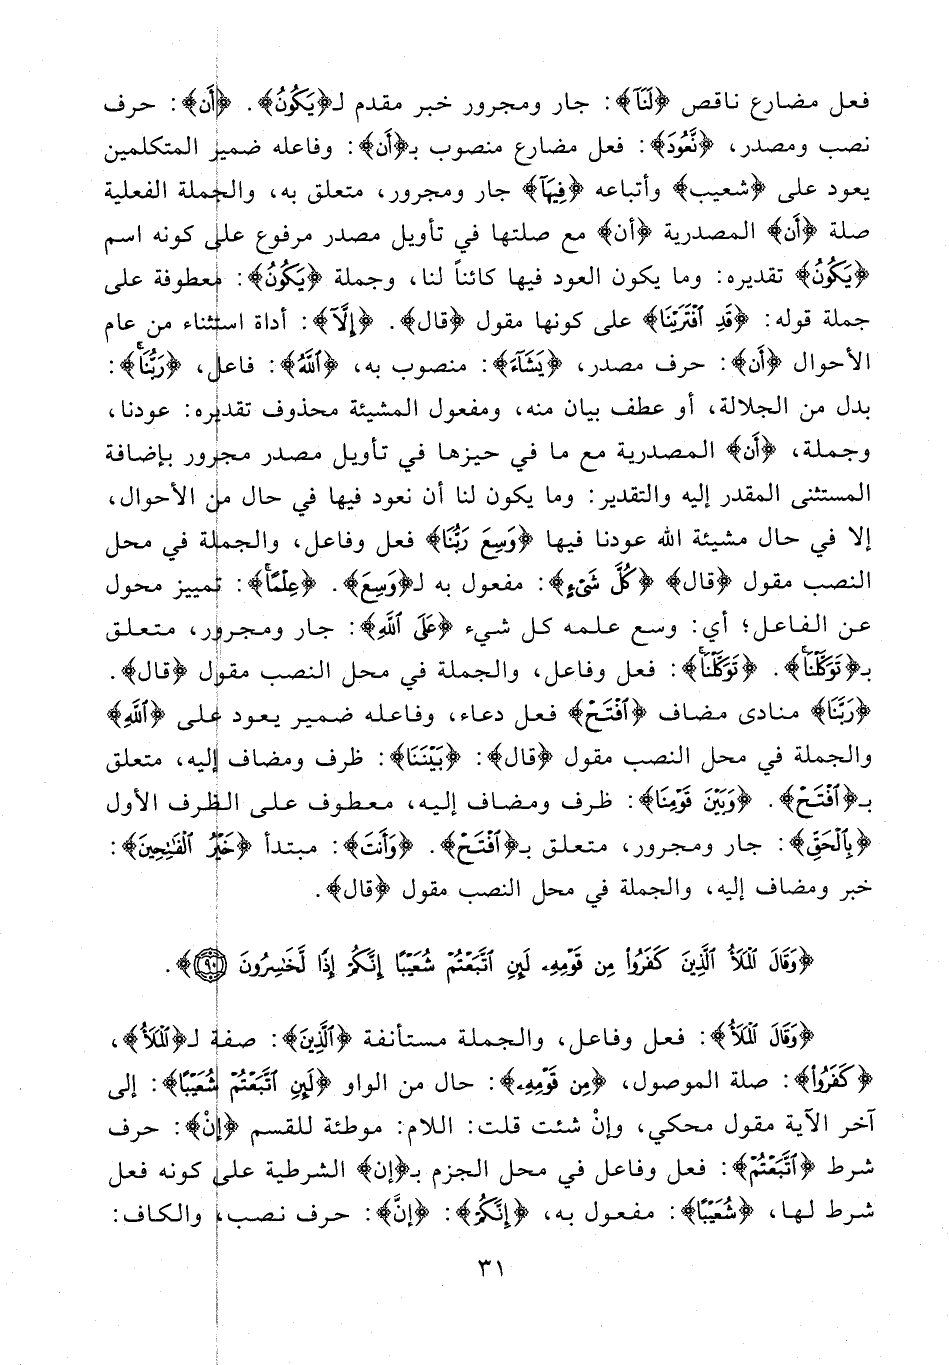 فعل مضارع ناقص ﴿لَنَآ﴾: جار ومجرور خبر مقدم لـ﴿يَكُونُ﴾. ﴿أَن﴾: حرف
نصب ومصدر، ﴿نَّعُودَ﴾: فعل مضارع منصوب بـ﴿أَن﴾: وفاعله ضمير المتكلمين
يعود على ﴿شعيب﴾ وأتباعه ﴿فِيهَآ﴾ جار ومجرور، متعلق به، والجملة الفعلية
صلة ﴿أَن﴾ المصدرية ﴿أن﴾ مع صلتها في تأويل مصدر مرفوع على كونه اسم
﴿يَكُونُ﴾ تقديره: وما يكون العود فيها كائناً لنا، وجملة ﴿يَكُونُ﴾: معطوفة على
جملة قوله: ﴿قَدِ ٱفْتَرَيْنَا﴾ على كونها مقول ﴿قال﴾. ﴿إِلَّآ﴾: أداة استثناء من عام
الأحوال ﴿أَن﴾: حرف مصدر، ﴿يَشَآءَ﴾: منصوب به، ﴿ٱللَّهُ﴾: فاعل، ﴿رَبُّنَاۚ﴾:
بدل من الجلالة، أو عطف بيان منه، ومفعول المشيئة محذوف تقديره: عودنا،
وجملة، ﴿أَن﴾ المصدرية مع ما في حيزها في تأويل مصدر مجرور بإضافة
المستثنى المقدر إليه والتقدير: وما يكون لنا أن نعود فيها في حال من الأحوال،
إلا في حال مشيئة الله عودنا فيها ﴿وَسِعَ رَبُّنَا﴾ فعل وفاعل، والجملة في محل
النصب مقول ﴿قال﴾ ﴿كُلَّ شَىْءٍ﴾: مفعول به لـ﴿وَسِعَ﴾. ﴿عِلْمًاۚ﴾: تمييز محول
عن الفاعل؛ أي: وسع علمه كل شيء ﴿عَلَى ٱللَّهِ﴾: جار ومجرور، متعلق
بـ﴿تَوَكَّلْنَاۚ﴾. ﴿تَوَكَّلْنَاۚ﴾: فعل وفاعل، والجملة في محل النصب مقول ﴿قال﴾.
﴿رَبَّنَا﴾ منادى مضاف ﴿ٱفْتَحْ﴾ فعل دعاء، وفاعله ضمير يعود على ﴿ٱللَّهِ﴾
والجملة في محل النصب مقول ﴿قال﴾: ﴿بَيْنَنَا﴾: ظرف ومضاف إليه، متعلق
بـ﴿ٱفْتَحْ﴾. ﴿وَبَيْنَ قَوْمِنَا﴾: ظرف ومضاف إليه، معطوف على الظرف الأول
﴿بِٱلْحَقِّ﴾: جار ومجرور، متعلق بـ﴿ٱفْتَحْ﴾. ﴿وَأَنتَ﴾: مبتدأ ﴿خَيْرُ ٱلْفَٰتِحِينَ﴾:
خبر ومضاف إليه، والجملة في محل النصب مقول ﴿قال﴾.
﴿وَقَالَ ٱلْمَلَأُ ٱلَّذِينَ كَفَرُوا۟ مِن قَوْمِهِۦ لَئِنِ ٱتَّبَعْتُمْ شُعَيْبًا إِنَّكُمْ إِذًا لَّخَٰسِرُونَ ٩٠﴾.
﴿وَقَالَ ٱلْمَلَأُ﴾: فعل وفاعل، والجملة مستأنفة ﴿ٱلَّذِينَ﴾: صفة لـ﴿ٱلْمَلَأُ﴾،
﴿كَفَرُوا۟﴾: صلة الموصول، ﴿مِن قَوْمِهِۦ﴾: حال من الواو ﴿لَئِنِ ٱتَّبَعْتُمْ شُعَيْبًا﴾: إلى
آخر الآية مقول محكي، وإنْ شئت قلت: اللام: موطئة للقسم ﴿إنْ﴾: حرف
شرط ﴿ٱتَّبَعْتُمْ﴾: فعل وفاعل في محل الجزم بـ﴿إن﴾ الشرطية على كونه فعل
شرط لها، ﴿شُعَيْبًا﴾: مفعول به، ﴿إِنَّكُمْ﴾: ﴿إنَّ﴾: حرف نصب، والكاف:
٣١